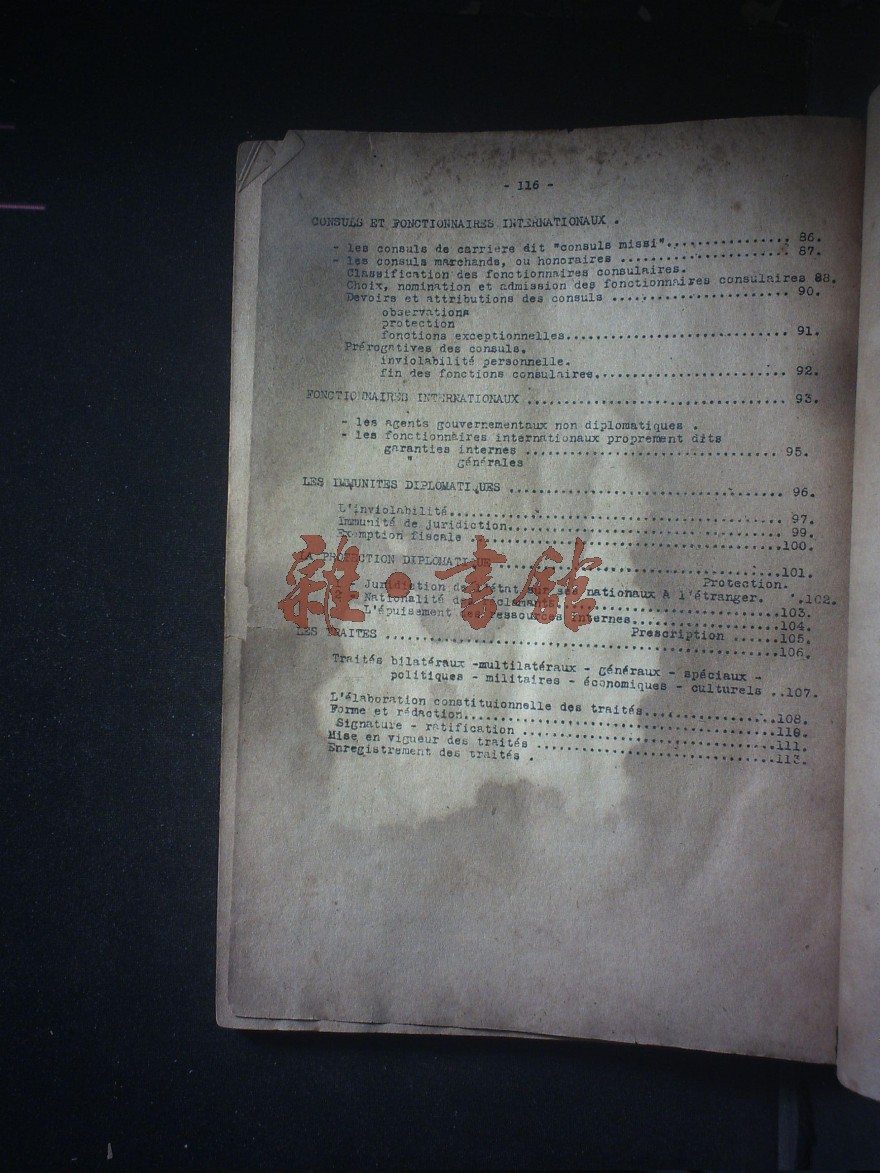 - 116 -
CONSULS ET FONCTIONNAIRES INTERNATIONAUX .
- les consuls de carrière dit "consuls missi"................ 86.
- les consuls marchands, ou honoraires ...................... 87.
Classification des fonctionnaires consulaires.
Choix, nomination et admission des fonctionnaires consulaires 88.
Devoirs et attributions des consuls ....................... 90.
observations
protection
fonctions exceptionnelles............................. 91.
Prérogatives des consuls.
inviolabilité personnelle.
fin des fonctions consulaires......................... 92.
FONCTIONNAIRES INTERNATIONAUX .................................. 93.
- les agents gouvernementaux non diplomatiques .
- les fonctionnaires internationaux proprement dits
garanties internes .................................. 95.
" générales
LES IMMUNITES DIPLOMATIQUES .................................... 96.
L'inviolabilité................................................ 97.
Immunité de juridiction........................................ 99.
Exemption fiscale .............................................100.
LA PROTECTION DIPLOMATIQUE .....................................101.
Protection.
Juridiction de l'état sur ses nationaux à l'étranger. .102.
Nationalité des réclamants.............................103.
L'épuisement des ressources internes...................104.
Prescription ......105.
LES TRAITES ....................................................106.
Traités bilatéraux -multilatéraux - généraux - spéciaux -
politiques - militaires - économiques - culturels ..107.
L'élaboration constituionnelle des traités.................108.
Forme et rédaction.........................................110.
Signature - ratification ..................................111.
Mise en vigueur des traités ...............................113.
Enregistrement des traités .
雜·書館